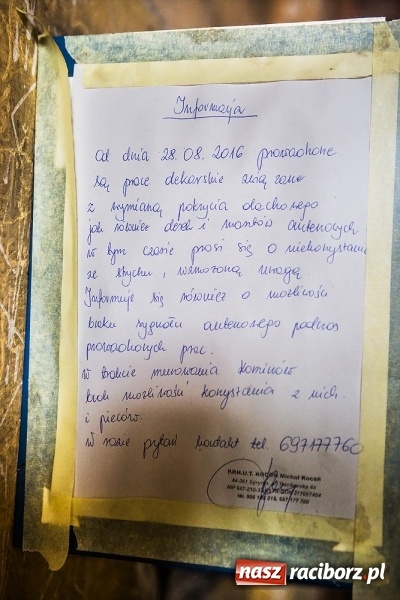 Informacja
od dnia 28.08.2016 prowadzone
są prace dekarskie związane
z wymianą pokrycia dachowego
jak również desek i masztów antenowych
w tym czasie prosi się o niekorzystanie
ze strychu, wzmożoną uwagę.
Informuje się również o możliwości
braku sygnału antenowego podczas
prowadzonych prac.
w trakcie murowania kominów
brak możliwości korzystania z nich
i pieców.
w razie pytań kontakt tel. 697177760
P.P.H.U.T. KOCOŃ Michał Kocoń
44-361 Syrynia,
tel.
nasz raciborz.pl